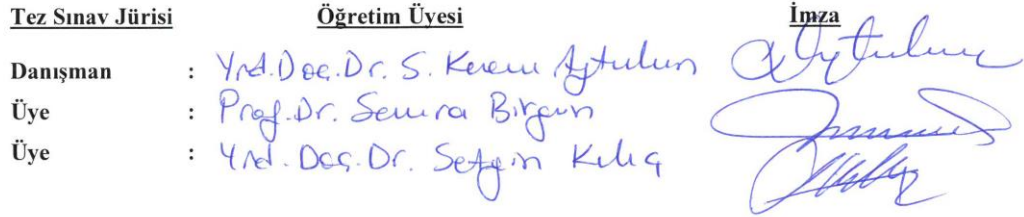 Tez Sınav Jürisi Öğretim Üyesi İmza
Danışman : Yrd.Doç.Dr. S. Kerem Aytulun
Üye : Prof.Dr. Semra Birgün
Üye : Yrd.Doç.Dr. Sezgin Kılıç